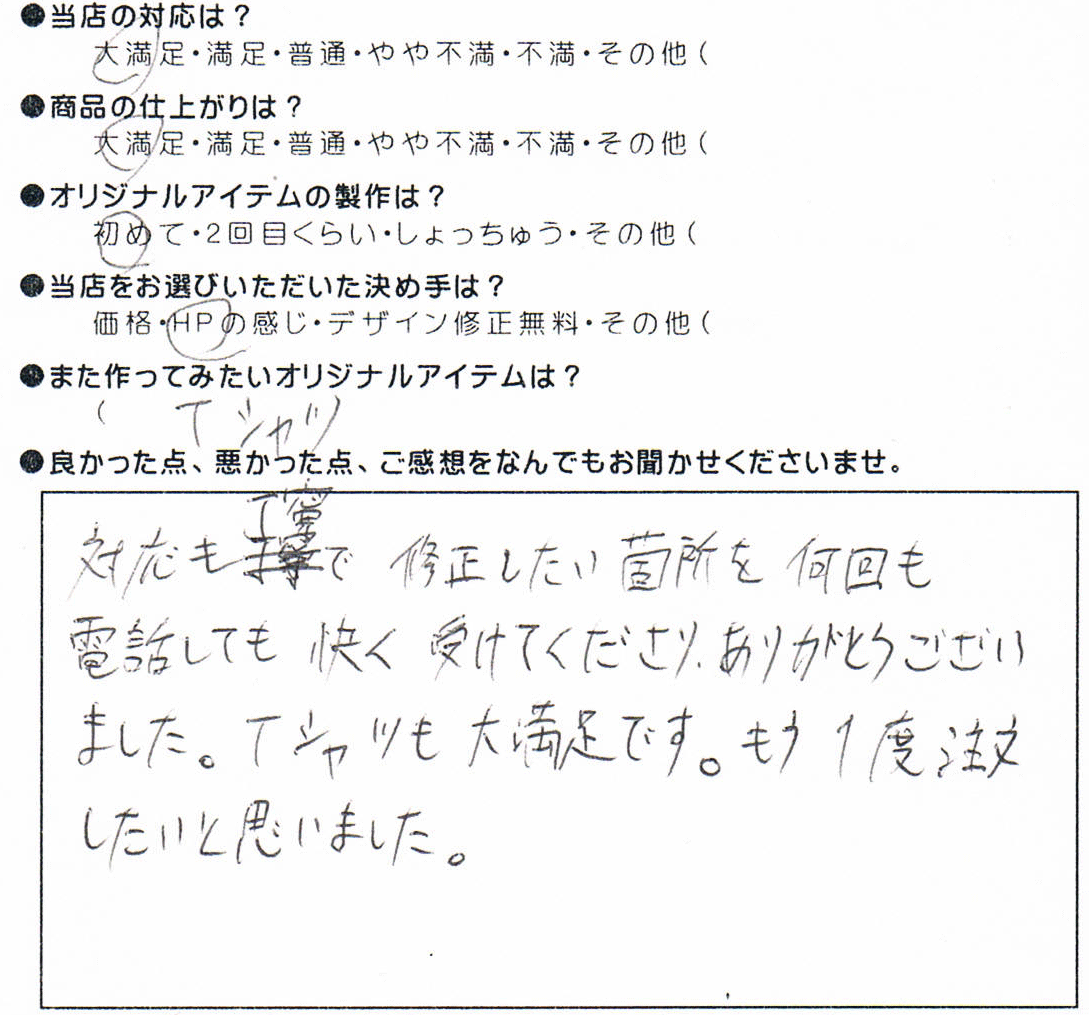 ●当店の対応は？
大満足・満足・普通・やや不満・不満・その他（
●商品の仕上がりは？
大満足・満足・普通・やや不満・不満・その他（
●オリジナルアイテムの製作は？
初めて・2回目くらい・しょっちゅう・その他（
●当店をお選びいただいた決め手は？
価格・HPの感じ・デザイン修正無料・その他（
●また作ってみたいオリジナルアイテムは？
（ Tシャツ
●良かった点、悪かった点、ご感想をなんでもお聞かせくださいませ。
対応も丁寧で 修正したい箇所を 何回も
電話しても 快く 受けてくださり、ありがとうござい
ました。Tシャツも 大満足です。もう1度注文
したいと思いました。